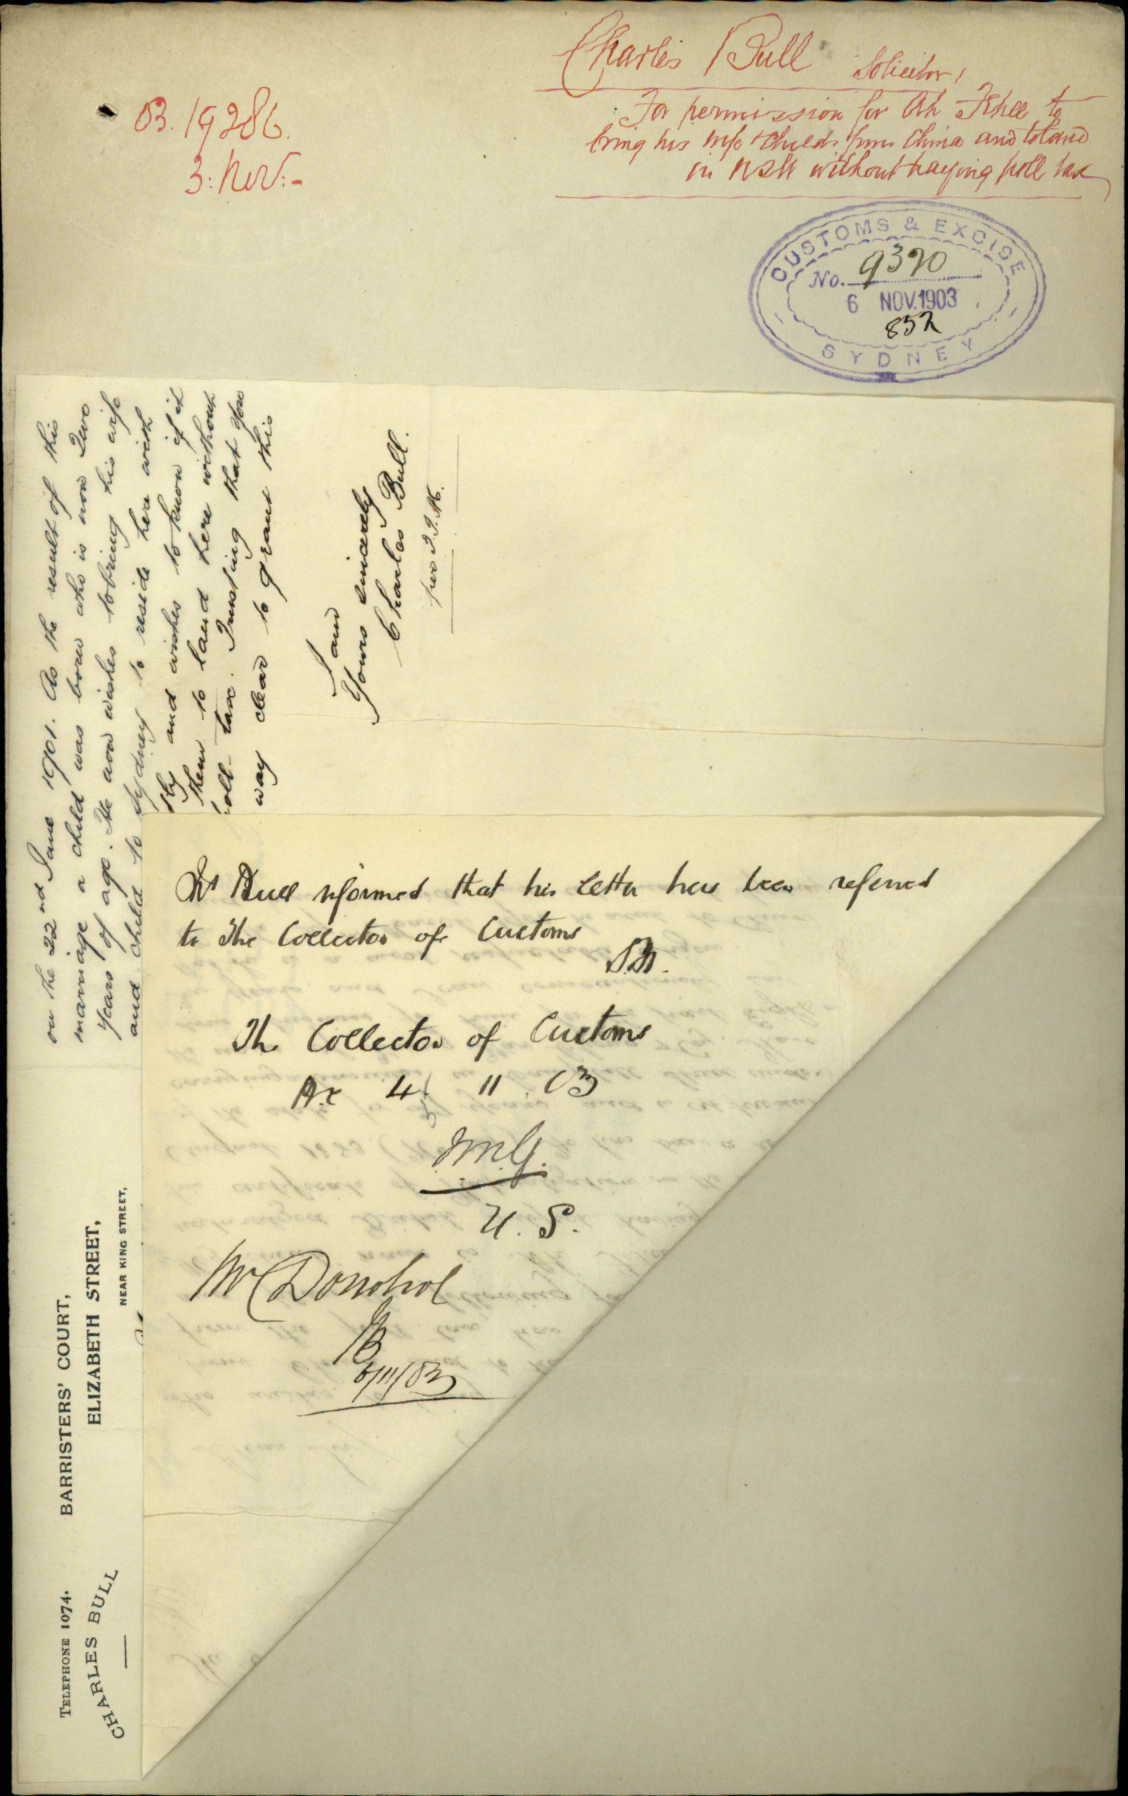 Charles Bull Solicitor,
For permission for Ah Tchee to
bring his wife & child from China and to land
in NSW without paying poll tax
03.19286.
3: Nov:-
CUSTOMS & EXCISE
No. 9370
6 NOV. 1903
852
SYDNEY
on the 22nd June 1901. As the result of this
marriage a child was born who is now Two
years of age. He now wishes to bring his wife
and child to Sydney to reside here with
and wishes to know if it
them to land here without
poll tax. Trusting that you
way clear to grant this
I am
Yours sincerely
Charles Bull.
TELEPHONE 1074.
CHARLES BULL
BARRISTERS' COURT,
ELIZABETH STREET,
NEAR KING STREET,
Mr Bull informed that his letter has been referred
to the Collector of Customs
The Collector of Customs
4 11 03
U. S.
Mr Donohoe
6/11/03